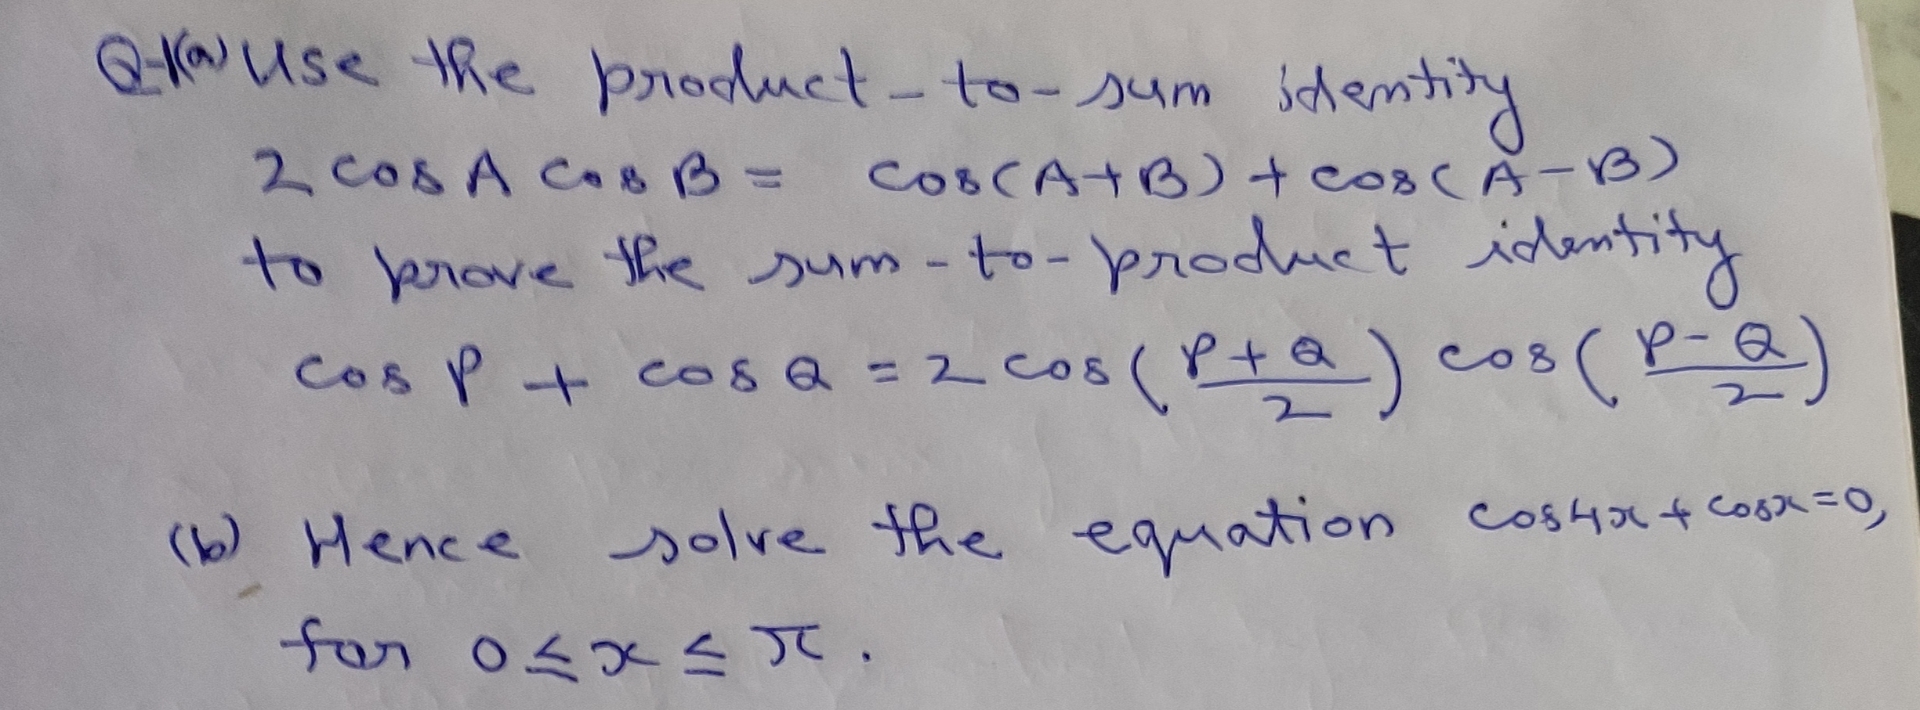 Q-1(a) Use the product-to-sum identity
2 cos A cos B = cos(A+B) + cos(A-B)
to prove the sum-to-product identity
cos P + cos Q = 2 cos((P+Q)/2) cos((P-Q)/2)
(b) Hence solve the equation cos4x + cosx=0,
for 0≤x≤π.